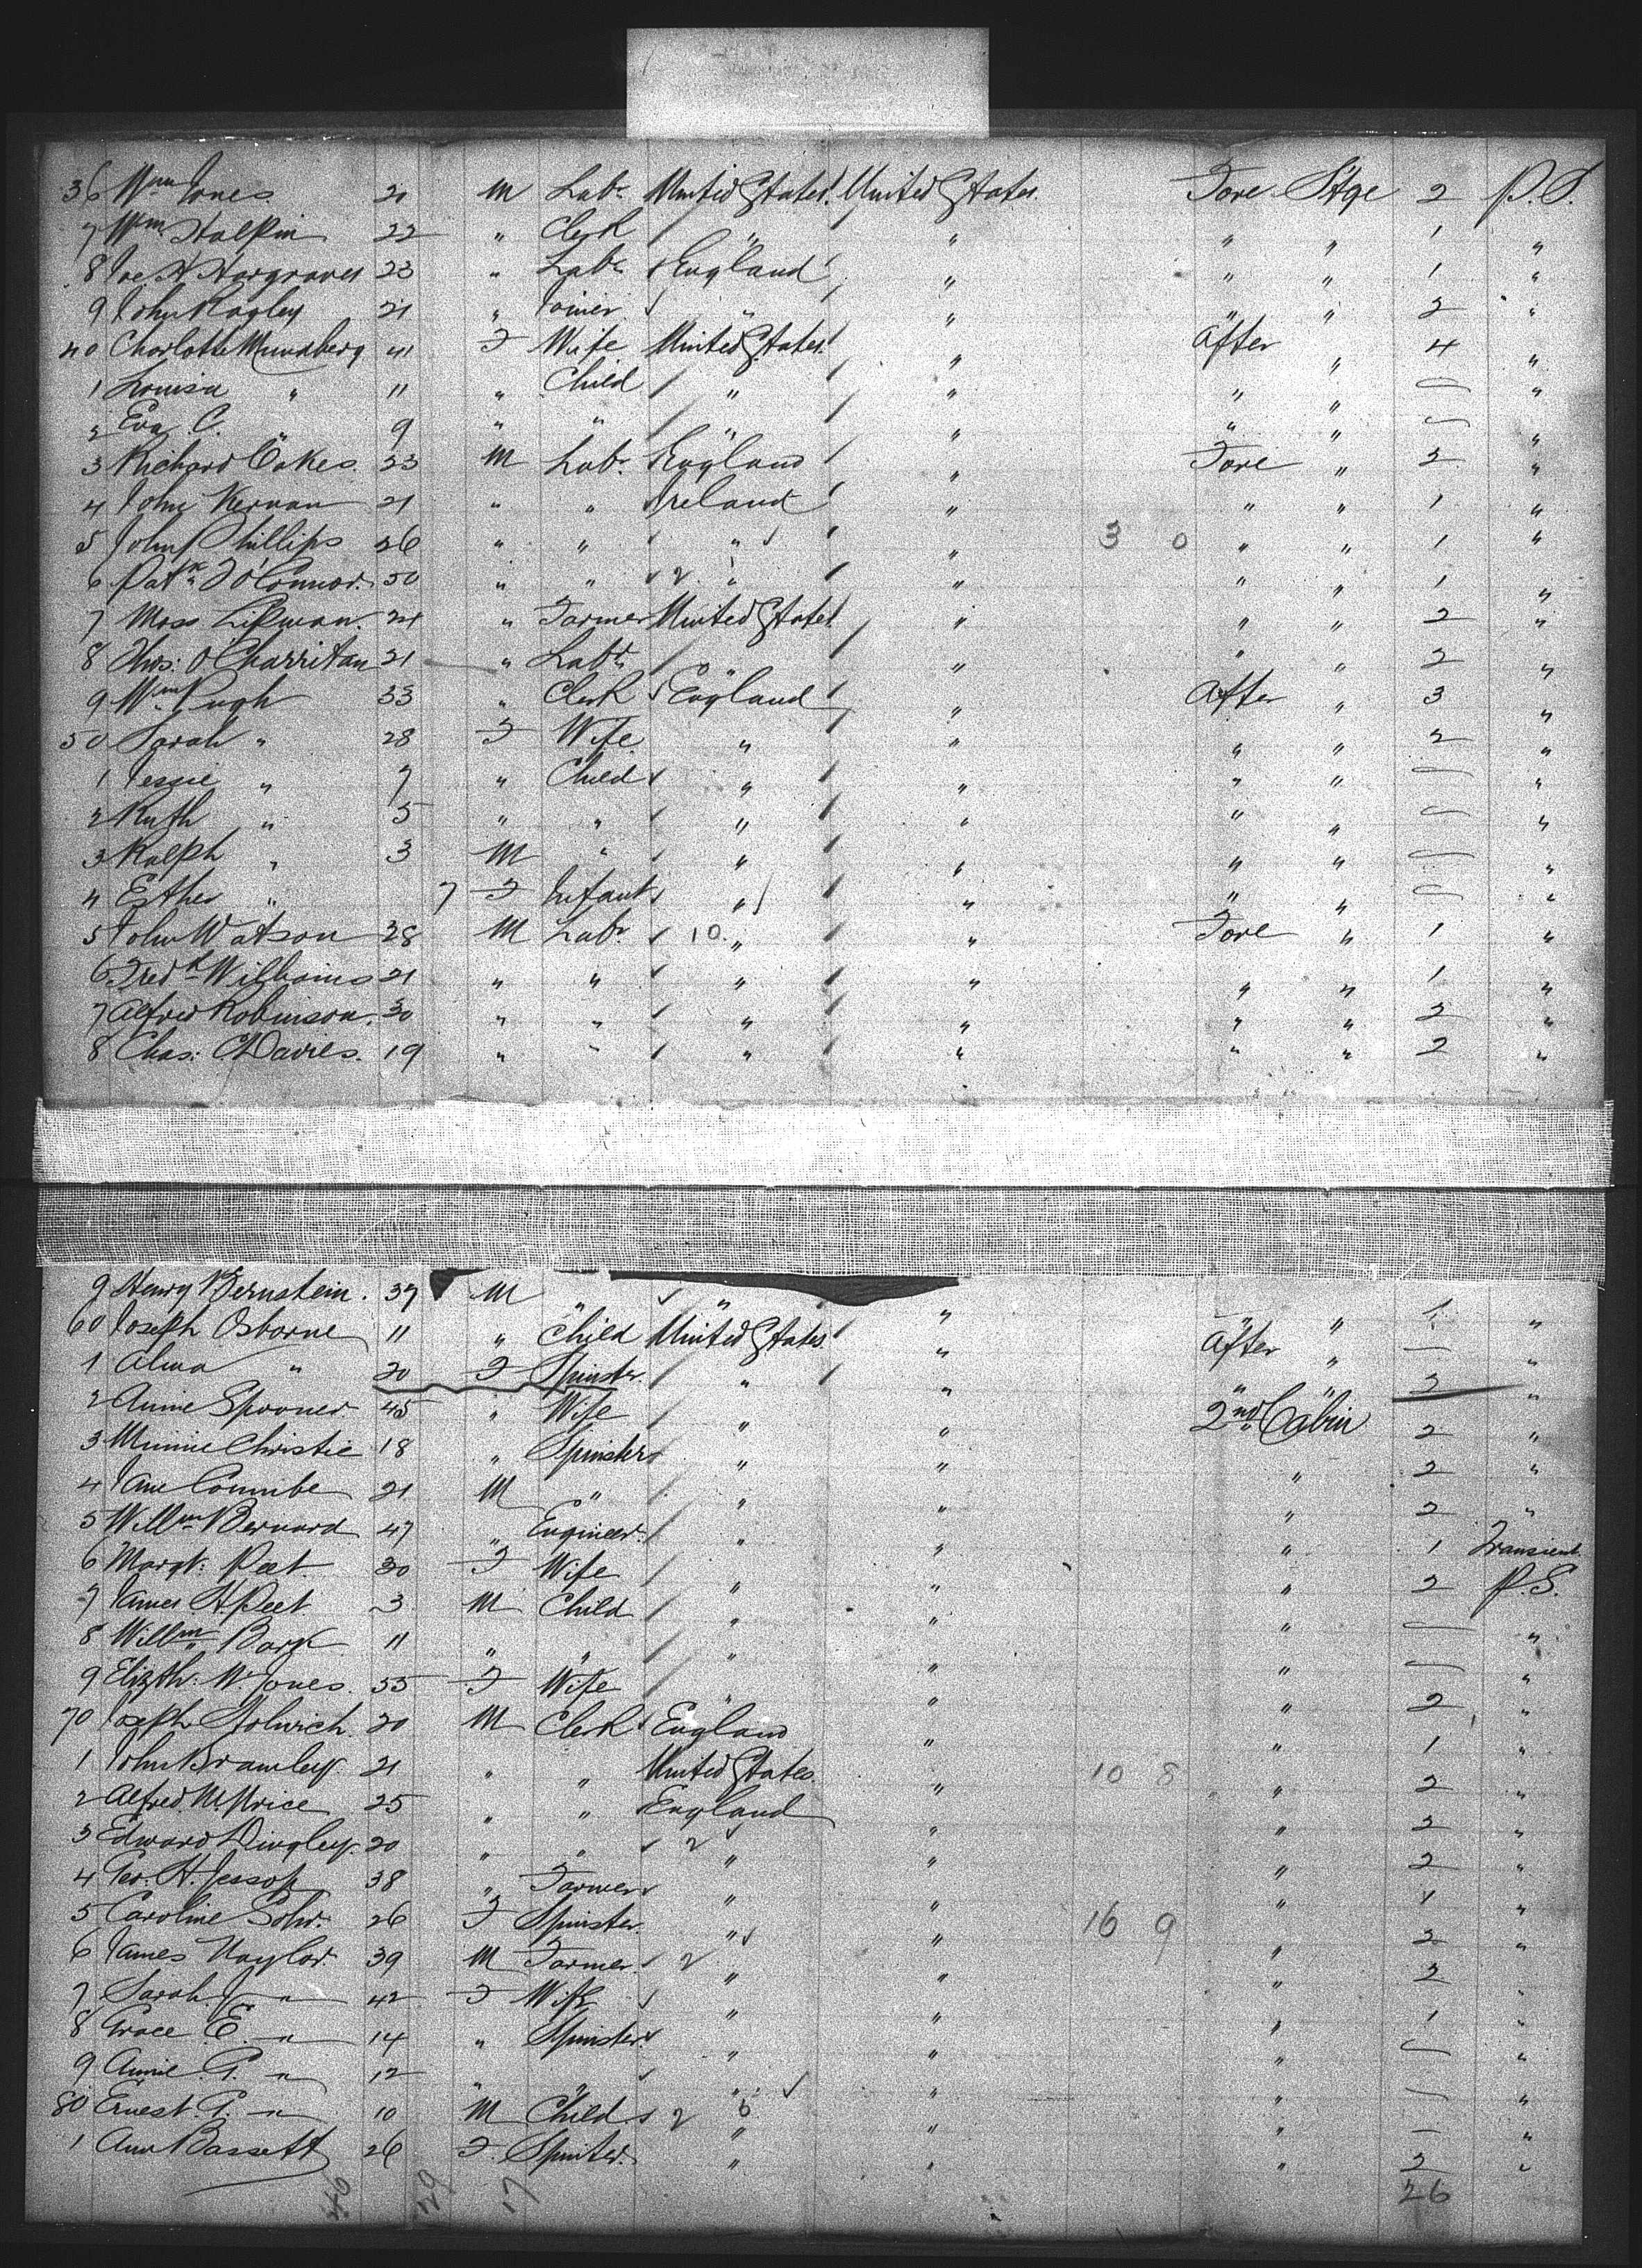 36 Wm Jones 20 M Labr United States United States Fore Stge 2 P.S.
7 Wm Halpin 22 " Clerk " " " " 1 "
8 Joe. H Hargraves 23 " Labr England " " " 1 "
9 John Ragley 21 " Joiner " " " " 2 "
40 Charlotte Mundberg 41 F Wife United States " After " 4 "
1 Louisa " 11 " Child " " " " — "
2 Eva C. " 9 " " " " " " — "
3 Richard Oakes 23 M Labr England " Fore " 2 "
4 John Kernan 21 " " Ireland " " " 1 "
5 John Phillips 26 " " " " 3 0 " " 1 "
6 Patk O'Connor 50 " " 2 " " " " 1 "
7 Moss Lipman 24 " Farmer United States " " " 2 "
8 Thos: O'Charritan 21 " Labr " " " " 2 "
9 Wm Pugh 33 " Clerk England " After " 3 "
50 Sarah " 28 F Wife " " " " 2 "
1 Jessie " 7 " Child " " " " — "
2 Ruth " 5 " " " " " " — "
3 Ralph " 3 M " " " " " — "
4 Esther " 7 F Infant " " " " — "
5 John Watson 28 M Labr 10 " " Fore " 1 "
6 Fredk Williams 21 " " " " " " 1 "
7 Alfred Robinson 30 " " " " " " 2 "
8 Chas: Davies 19 " " " " " " 2 "
9 Henry Bernstein 37 M " " " " " 1 "
60 Joseph Osborne 11 " Child United States " After " — "
1 Alma " 20 F Spinster " " " " 2 "
2 Annie Spooner 45 " Wife " " 2nd Cabin 2 "
3 Minnie Christie 18 " Spinster " " " 2 "
4 Jane Coumbe 21 M " " " " 2 "
5 Willm Bernard 47 " Engineer " " " 1 Transient
6 Margt: Peet 30 F Wife " " " 2 P.S.
7 James H. Peet 3 M Child " " " — "
8 Willm Bark 11 " " " " " — "
9 Elizth: W. Jones 55 F Wife " " " 2 "
70 Joseph Stolwich 20 M Clerk England " " 1 "
1 John Bramley 21 " " United States " 10 8 " 2 "
2 Alfred W. Price 25 " " England " " 2 "
3 Edward Dingley 20 " " 2 " " " 2 "
4 Geo. H. Jessop 38 " Farmer " " " 1 "
5 Caroline Sohr. 26 F Spinster " " 16 9 " 2 "
6 James Naylor 39 M Farmer 2 " " " 2 "
7 Sarah J " 42 F Wife " " " 1 "
8 Grace E. " 14 " Spinster " " " — "
9 Annie. G. " 12 " " " " " — "
80 Ernest. G. " 10 M Child 2 6 " " " — "
1 Ann Bassett 26 F Spinster " " " 2 "
46 29 17 26